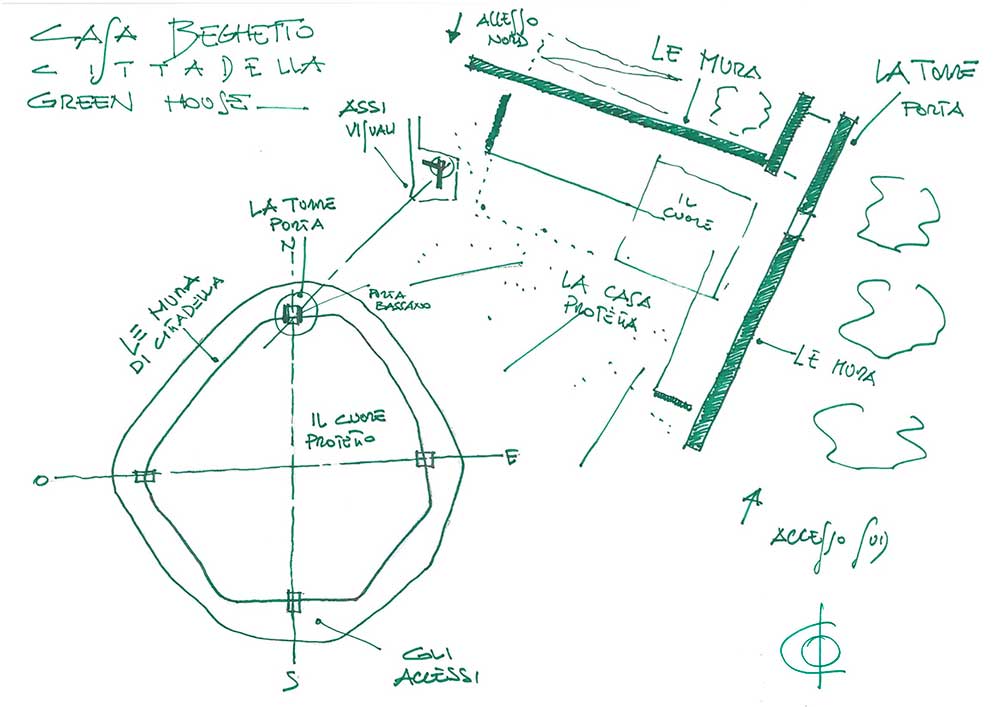 CASA BEGHETTO
CITTADELLA
GREEN HOUSE
ACCESSO
NORD
LE MURA
LA TORRE
PORTA
ASSI
VISUALI
IL
CUORE
LA TORRE
PORTA
N
PORTA
BASSANO
LE MURA
DI CITTADELLA
LA CASA
PROTETTA
LE MURA
IL CUORE
PROTETTO
O
E
ACCESSO SUD
GLI
ACCESSI
S